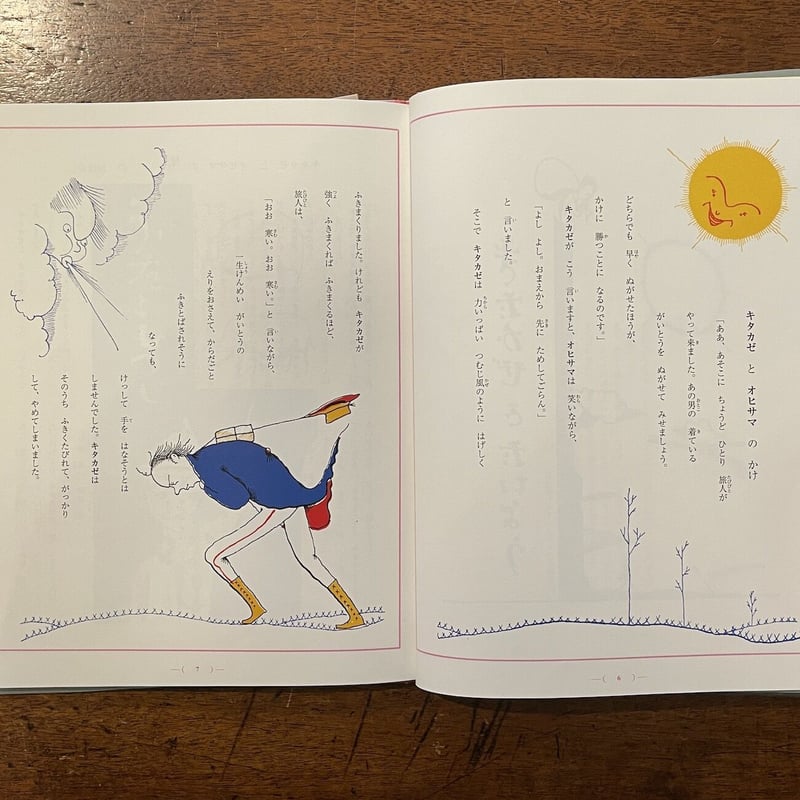 キタカゼ と オヒサマ の かけ
「ああ、あそこに ちょうど ひとり 旅人が
やって来ました。あの男の 着ている
がいとうを ぬがせて みせましょう。
どちらでも 早く ぬがせたほうが、
かけに 勝つことに なるのです。」
キタカゼが こう 言いますと、オヒサマは 笑いながら、
「よし よし。おまえから 先に ためしてごらん。」
と 言いました。
そこで キタカゼは 力いっぱい つむじ風のように はげしく
—( 6 )—
ふきまくりました。けれども キタカゼが
強く ふきまくれば ふきまくるほど、
旅人は、
「おお 寒い。おお 寒い。」と 言いながら、
一生けんめい がいとうの
えりをおさえて、からだごと
ふきとばされそうに
なっても、
けっして 手を はなそうとは
しませんでした。キタカゼは
そのうち ふきくたびれて、がっかり
して、やめてしまいました。
—( 7 )—